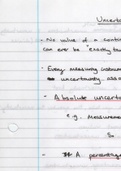 Uncerta
- No value of a conti
can ever be "exactly
- Every measuring instrum
uncertainty ass
- Absolute uncert
e.g. Measurem
So
- A percentage